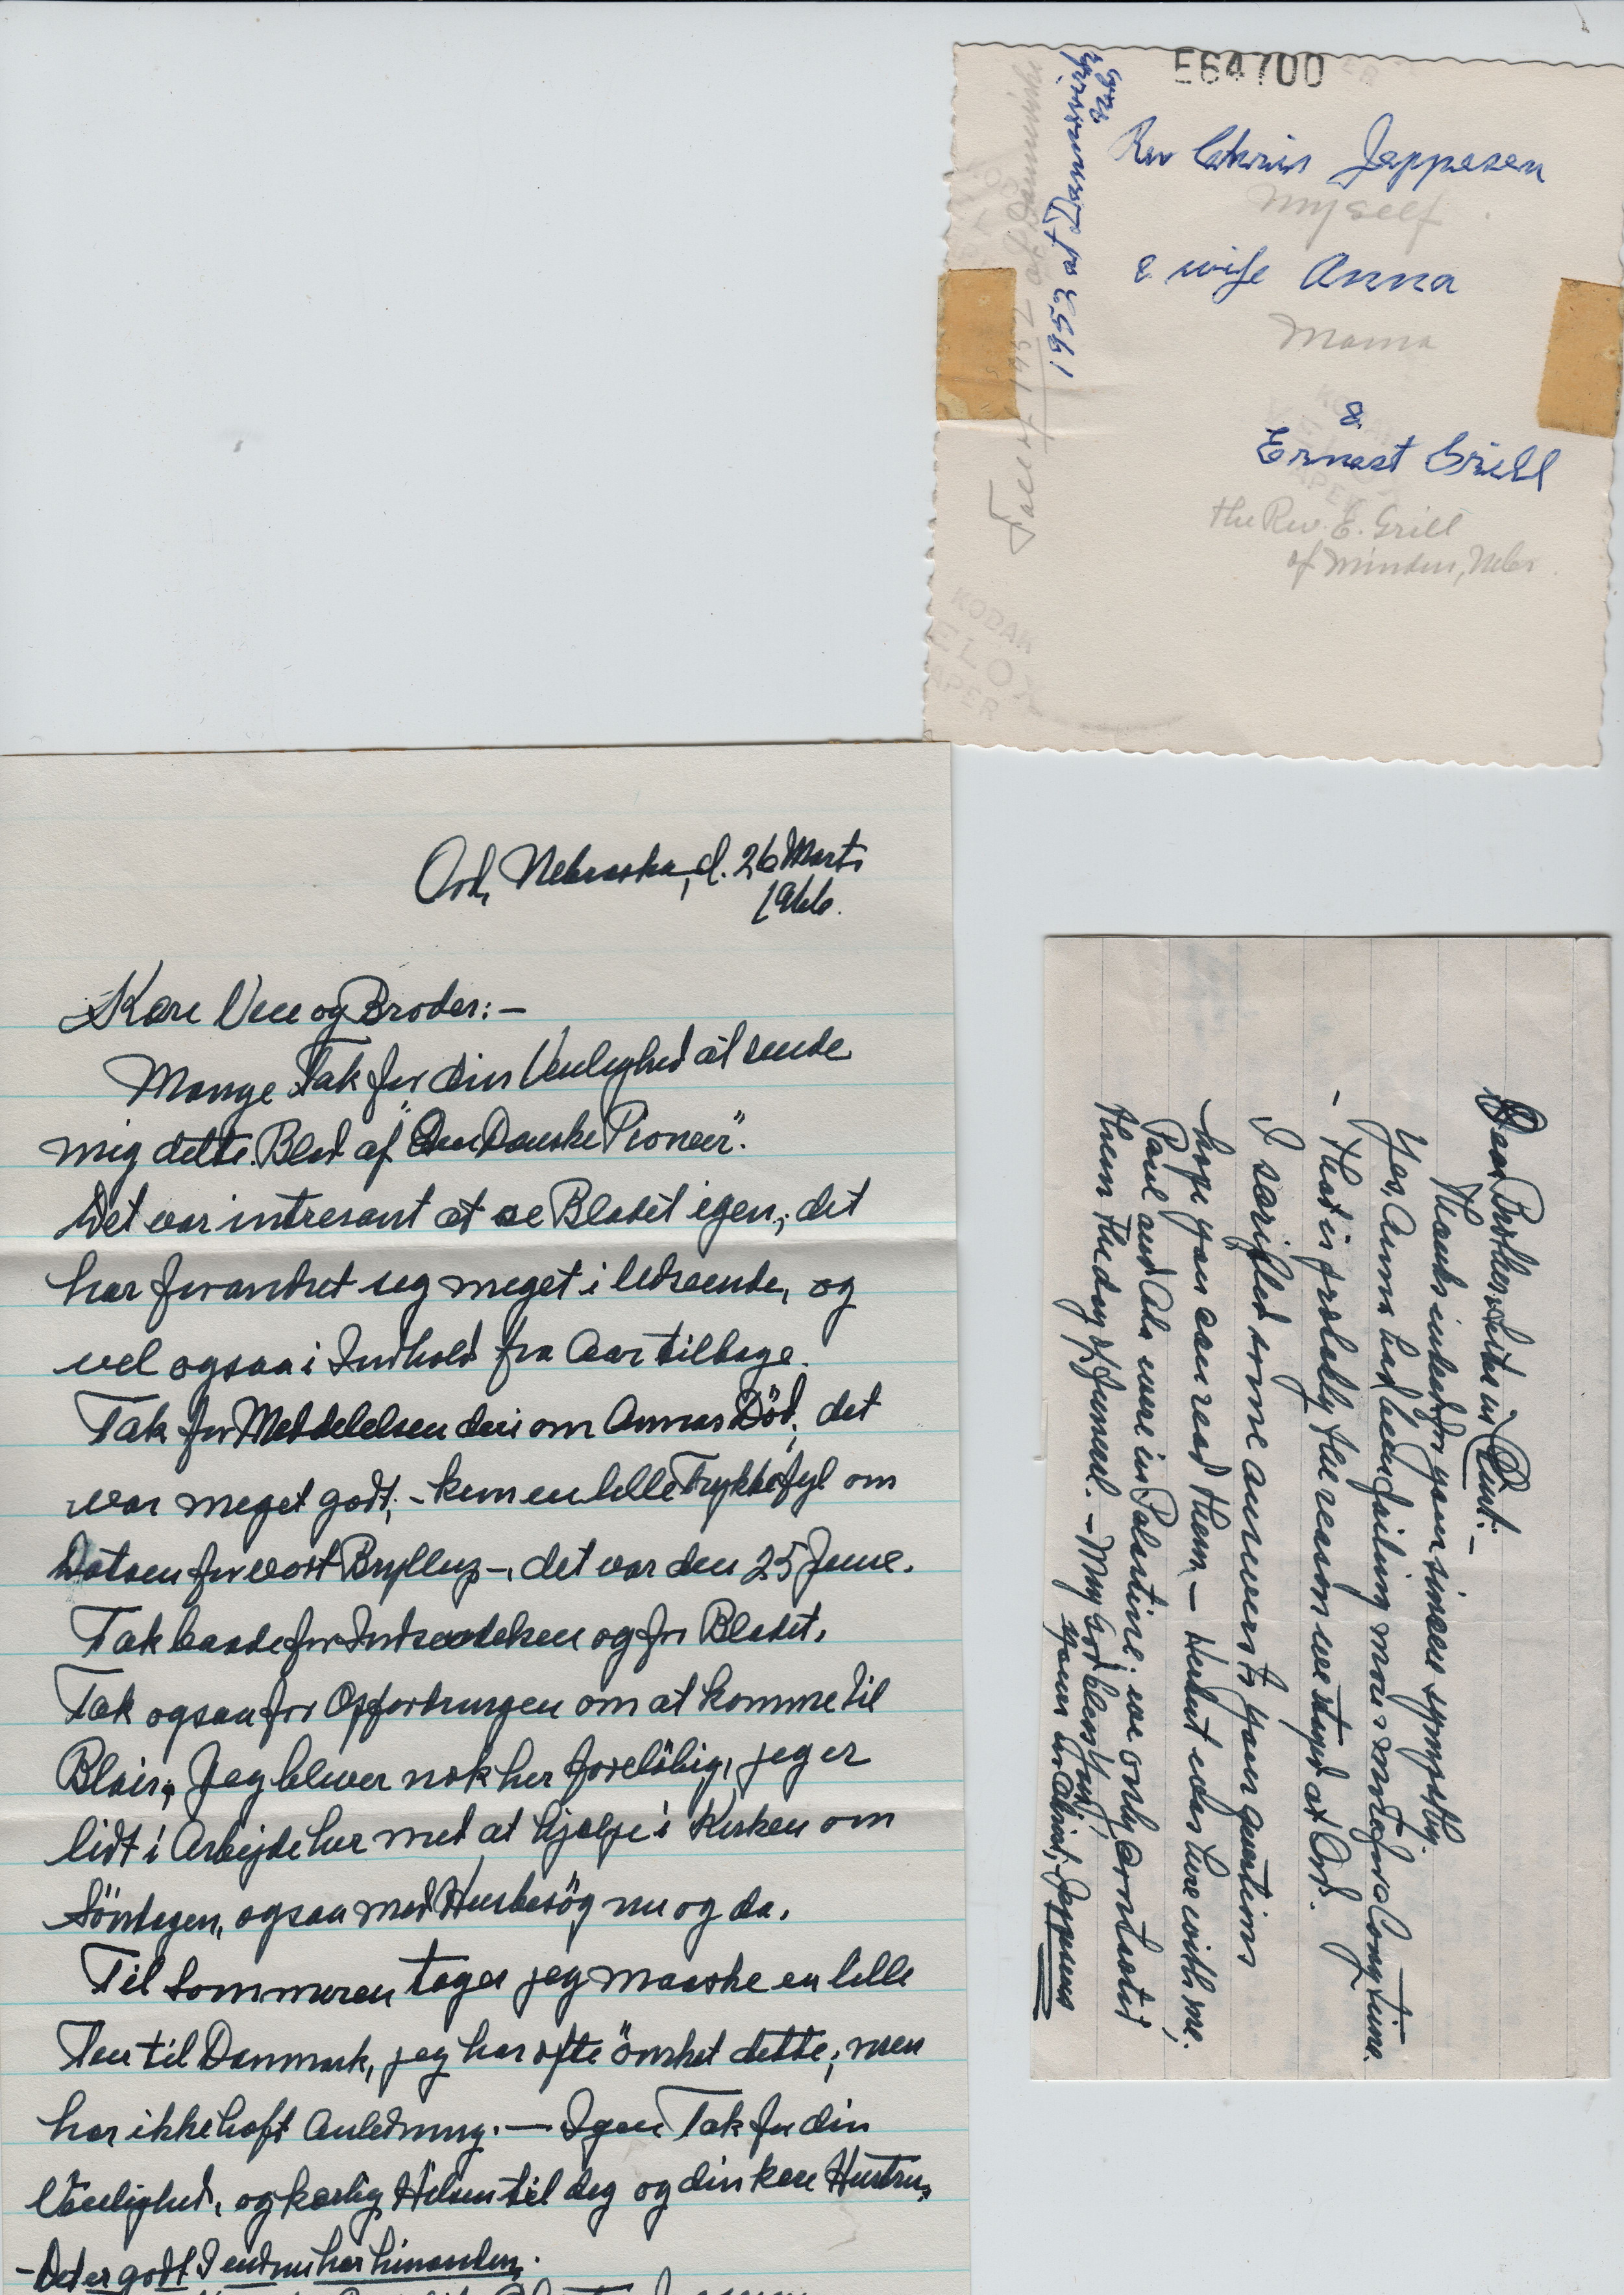 E64700
Rev Chris Jeppesen
Myself.
& wife Anna
Mama
&
Ernest Grill
the Rev. E. Grill
of Minden, Nebr.
1953 at
Fall of 1952 at
KODAK
VELOX
PAPER
Ord, Nebraska, d. 26 Marts
1966.
Kære Ven og Broder:-
Mange Tak for din Venlighed at sende
mig dette Blad af "Den Danske Pioneer".
Det var intresant at se Bladet igen; det
har forandret sig meget i Udseende, og
vel ogsaa i Indhold fra Aar tilbage.
Tak for Meddelelsen deri om Annas Död; det
var meget godt; - kun en lille Trykkefejl om
Datoen for vort Bryllup -, det var den 25 June.
Tak baade for Indsendelsen og for Bladet.
Tak ogsaa for Opfordringen om at komme til
Blair, Jeg bliver nok her foreløbig, jeg er
lidt i Arbejde her med at hjælpe i Kirken om
Söndagen, ogsaa med Husbesög nu og da.
Til Sommeren tager jeg maaske en lille
Tur til Danmark, jeg har ofte önsket dette; men
har ikke haft Anledning. — Igen Tak for din
Venlighed, og kærlig Hilsen til dig og din kære Hustru,
- Det er godt I endnu har hinanden.
Dear Brother & Sister in Christ:-
Thanks indeed for your sincere sympathy.
Yes, Anna had been failing more & more for a long time.
- That is probably the reason we stayed at Ord.
I scribled some answers to your questions
- hope you can read them. - Herbert was here with me,
Paul and Ada were in Palestine; we only contacted
them the day of funeral. - May God bless you!
Yours in Christ, Jeppesens